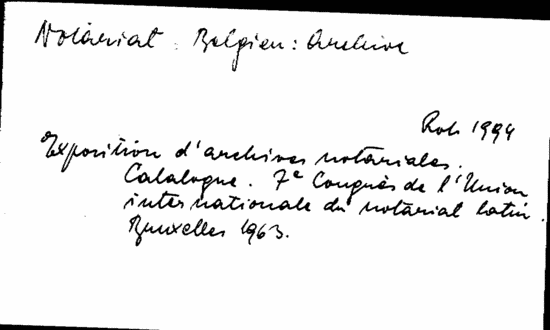 Notariat : Belgien : Archive
Roh 1994
Exposition d'archives notariales.
Catalogue. 7e Congrès de l'Union
internationale du notariat latin.
Bruxelles 1963.